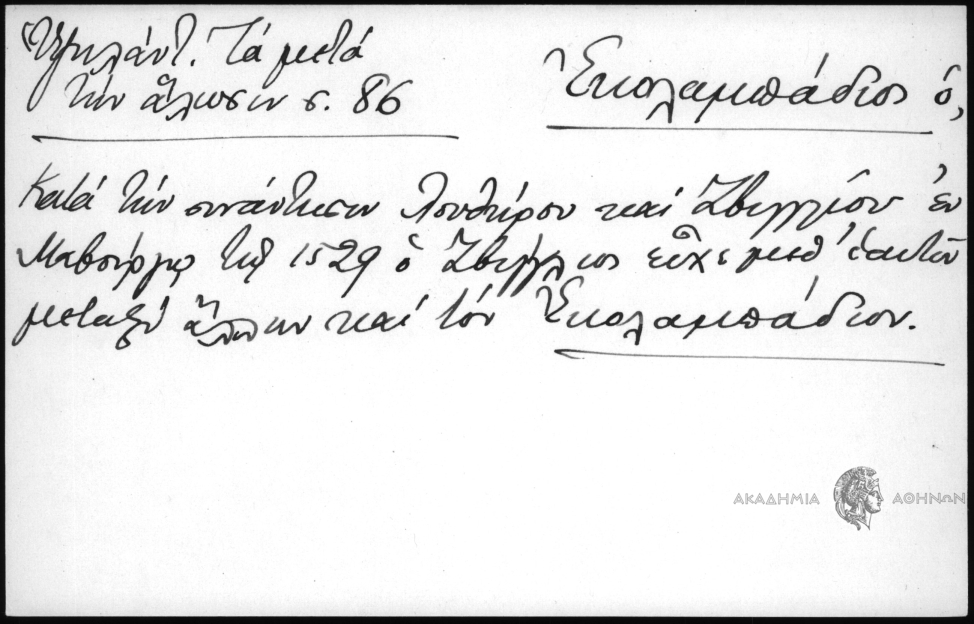 Ὑψηλάντ. Τά μετά
τήν ἅλωσιν σ. 86
Ἐκολαμπάδιος ὁ,
Κατά τήν συνάντησιν Λουθήρου καί Ζβιγγλίου ἐν
Μαβούργῳ τῷ 1529 ὁ Ζβίγγλιος εἶχε μεθ' ἑαυτοῦ
μεταξύ ἄλλων καί τόν Ἐκολαμπάδιον.
ΑΚΑΔΗΜΙΑ ΑΘΗΝΩΝ